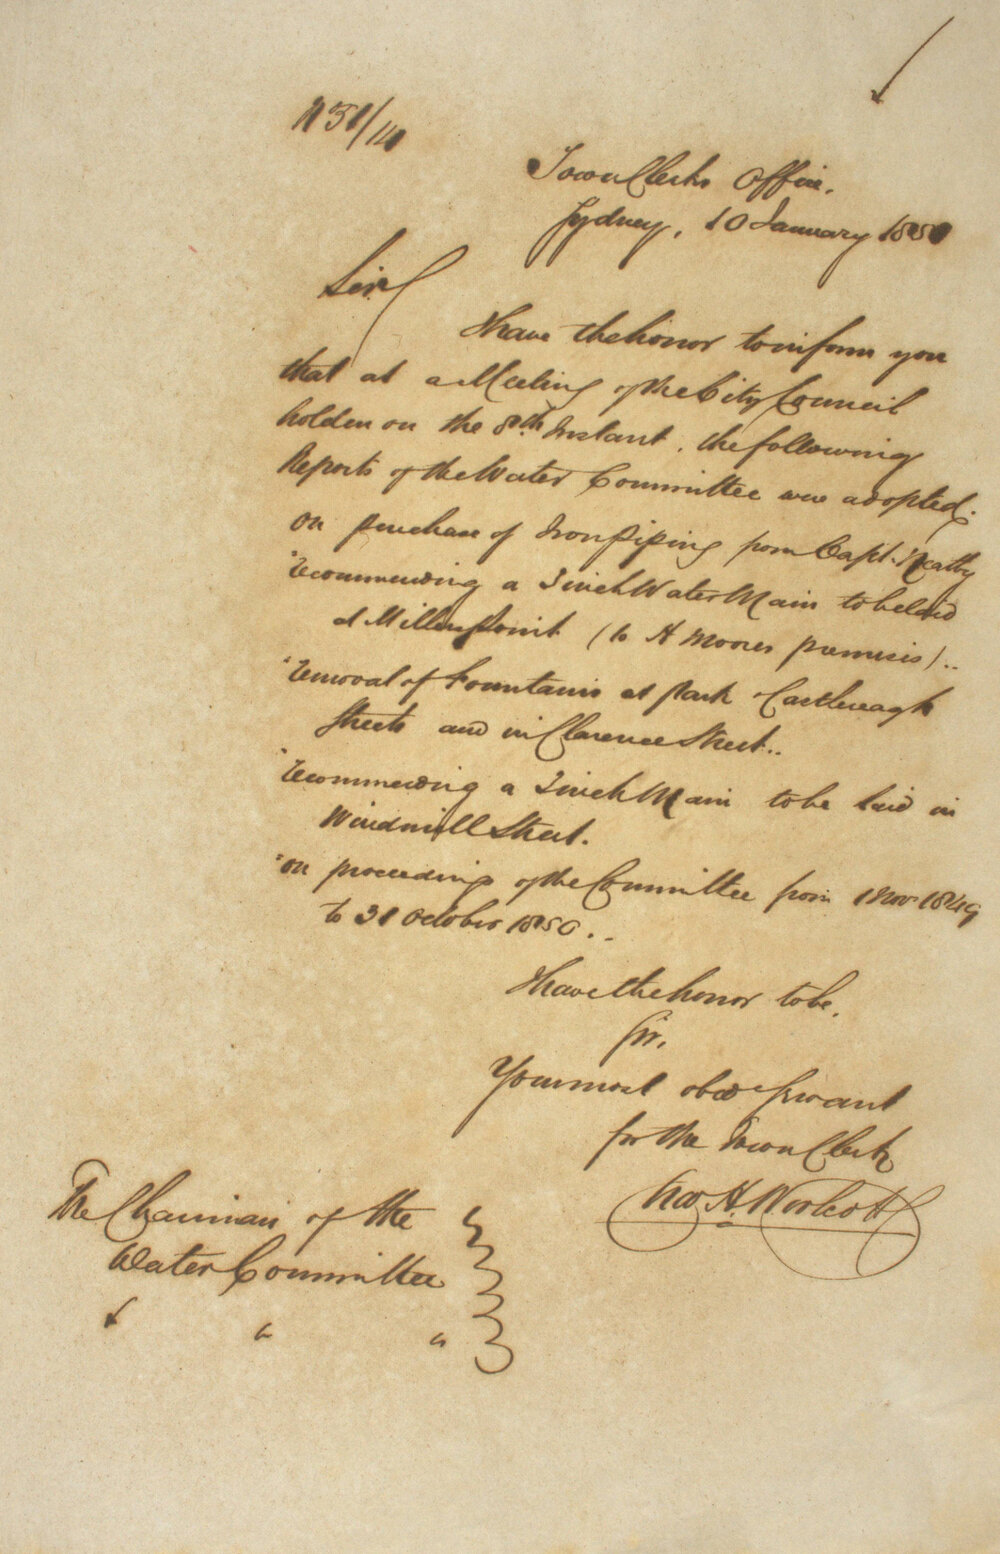 Town Clerks Office.
Sydney, 10 January 1851
Sir
I have the honor to inform you
that at a Meeting of the City Council
holden on the 8th Instant, the following
Reports of the Water Committee were adopted:
On purchase of Iron piping from Capt.
" recommending a 3 inch Water Main to be laid
at Millers Point (to H Moores premises)..
" removal of Fountains at Park Castlereagh
Streets and in Clarence Street..
" recommending a 3 inch Main to be laid in
Windmill Street.
" on proceedings of the Committee from 1 Nov 1849
to 31 October 1850..
I have the honor to be,
Sir,
Your most obed Servant
for the Town Clerk
Chas H. Woolcott
The Chairman of the
Water Committee
" " "